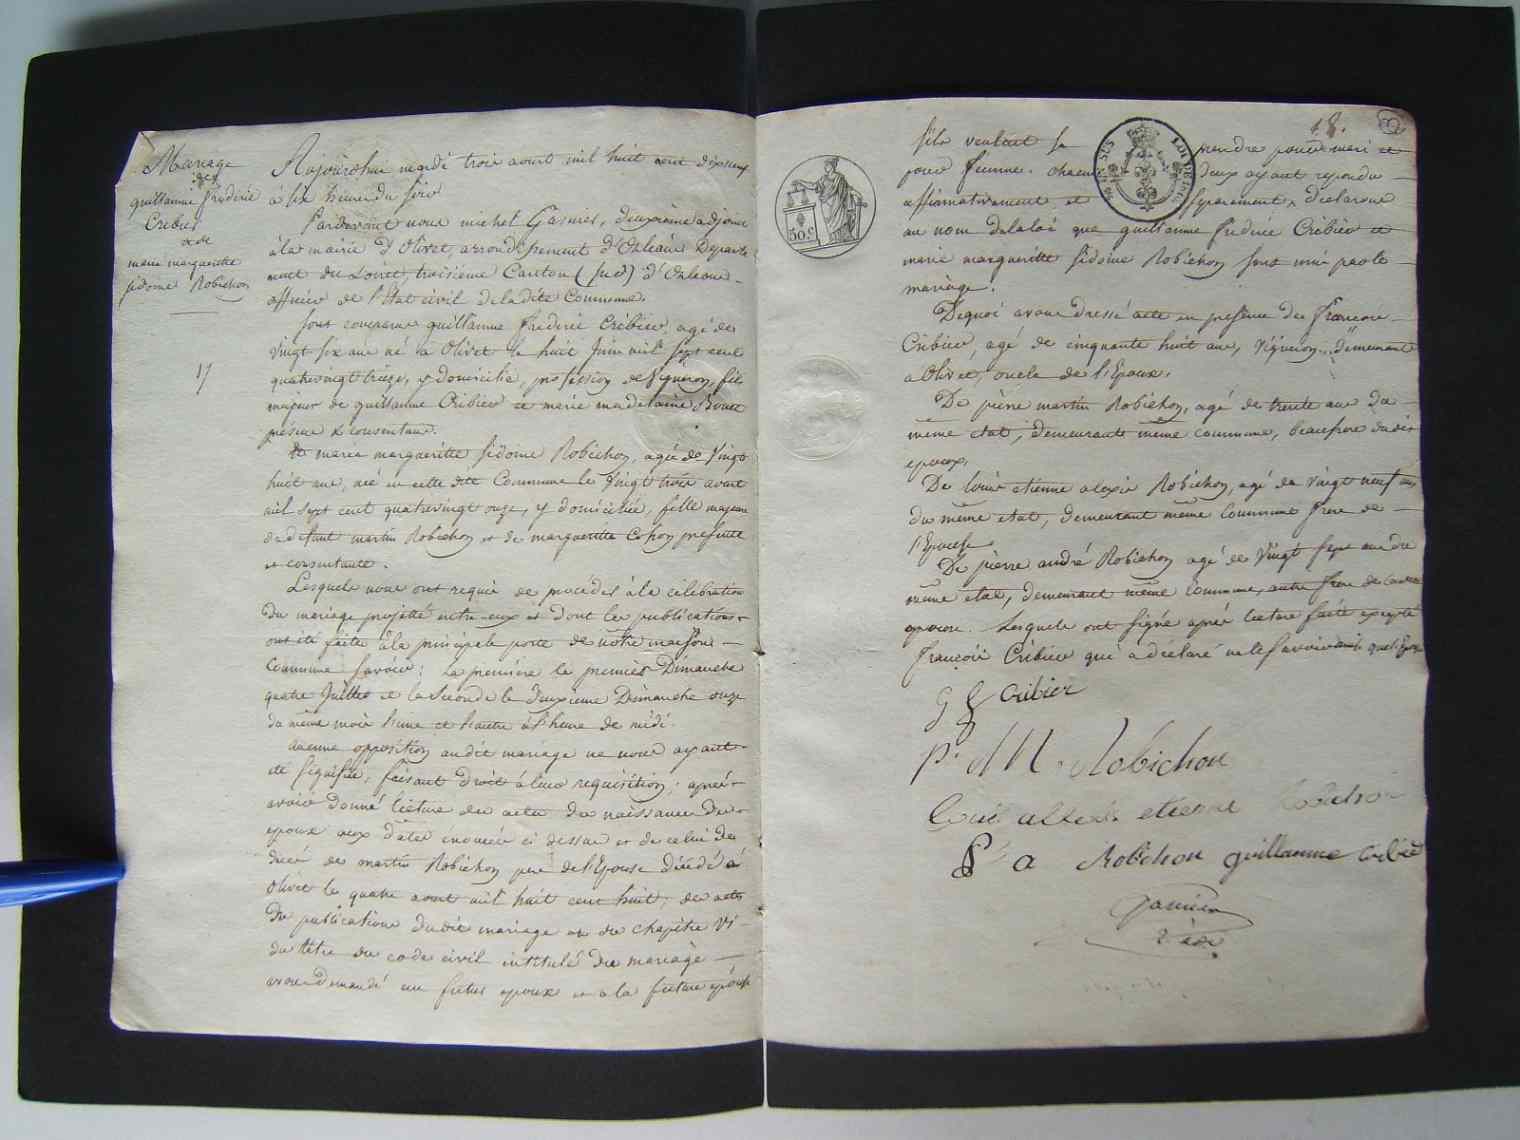 Mariage
des
guillaume frédéric
Cribier
et de
marie margueritte
sidonie Robichon
17
Aujourdhui mardi trois aoust mil huit cent dixneuf
à six heures du soir
Pardevant nous michel Gasnier, deuxième adjoint
à la mairie d'Olivet, arrondissement d'Orléans Departe
ment du Loiret, troisième Canton (sud) d'Orléans
officier de l'Etat civil de la dite Commune.
sont comparus guillaume frédéric Cribier, agé de
vingt six ans né à Olivet le huit Juin mil sept cent
quatrevingt treize, y domicilié, profession de Vigneron, fils
majeur de guillaume Cribier et marie madelaine
présens & consentans.
et marie margueritte sidonie Robichon, agée de Vingt
huit ans, née en cette dite Commune le Vingt trois aoust
mil sept cent quatrevingt onze, y domiciliée, fille majeure
de défunt martin Robichon et de margueritte présente
et consentante.
Lesquels nous ont requis de procéder à la célébration
du mariage projetté entre eux et dont les publications
ont été faites à la principale porte de notre maison
Commune savoir: La première le premier Dimanche
quatre Juillet et la Seconde le Deuxieme Dimanche onze
du même mois l'une et l'autre à l'heure de midi.
aucune opposition audit mariage ne nous ayant
été signifiée, faisant droit à leur requisition; après
avoir donné lecture des actes de naissances des
epoux aux dates énoncées ci dessus et de celui de
décès de martin Robichon père de l'Epouse décédé à
Olivet le quatre aout mil huit cent huit, des actes
de publications dudit mariage et du chapitre VI
du titre du code civil intitulé du mariage
avons demandé au futur epoux et à la future epouse
18.
50 c
s'ils veulent se prendre pour mari et
pour femme. chacun deux ayant repondu
affirmativement et séparement, déclarons
au nom de la loi que guillaume frédéric Cribier et
marie margueritte sidonie Robichon sont unis par le
mariage.
De quoi avons dressé acte en présence de françois
Cribier, agé de cinquante huit ans, Vigneron, demeurant
a Olivet, oncle de l'Epoux.
De pierre martin Robichon, agé de trente ans du
même état, demeurant même commune, beaufrere dudit
epoux.
De louis etienne alexis Robichon, agé de Vingt neuf ans
du même etat, demeurant même Commune frere de
l'Epouse
De pierre andré Robichon agé de Vingt sept ans du
même etat, demeurant même Commune, autre frere de
epouse. Lesquels ont signé après lecture faite excepté
françois Cribier qui a déclaré ne le savoir ainsi que l'Epouse
G f Cribier
P. M. Robichon
Louis alexis etienne Robichon
P. a Robichon guillaume Cribier
Gasnier